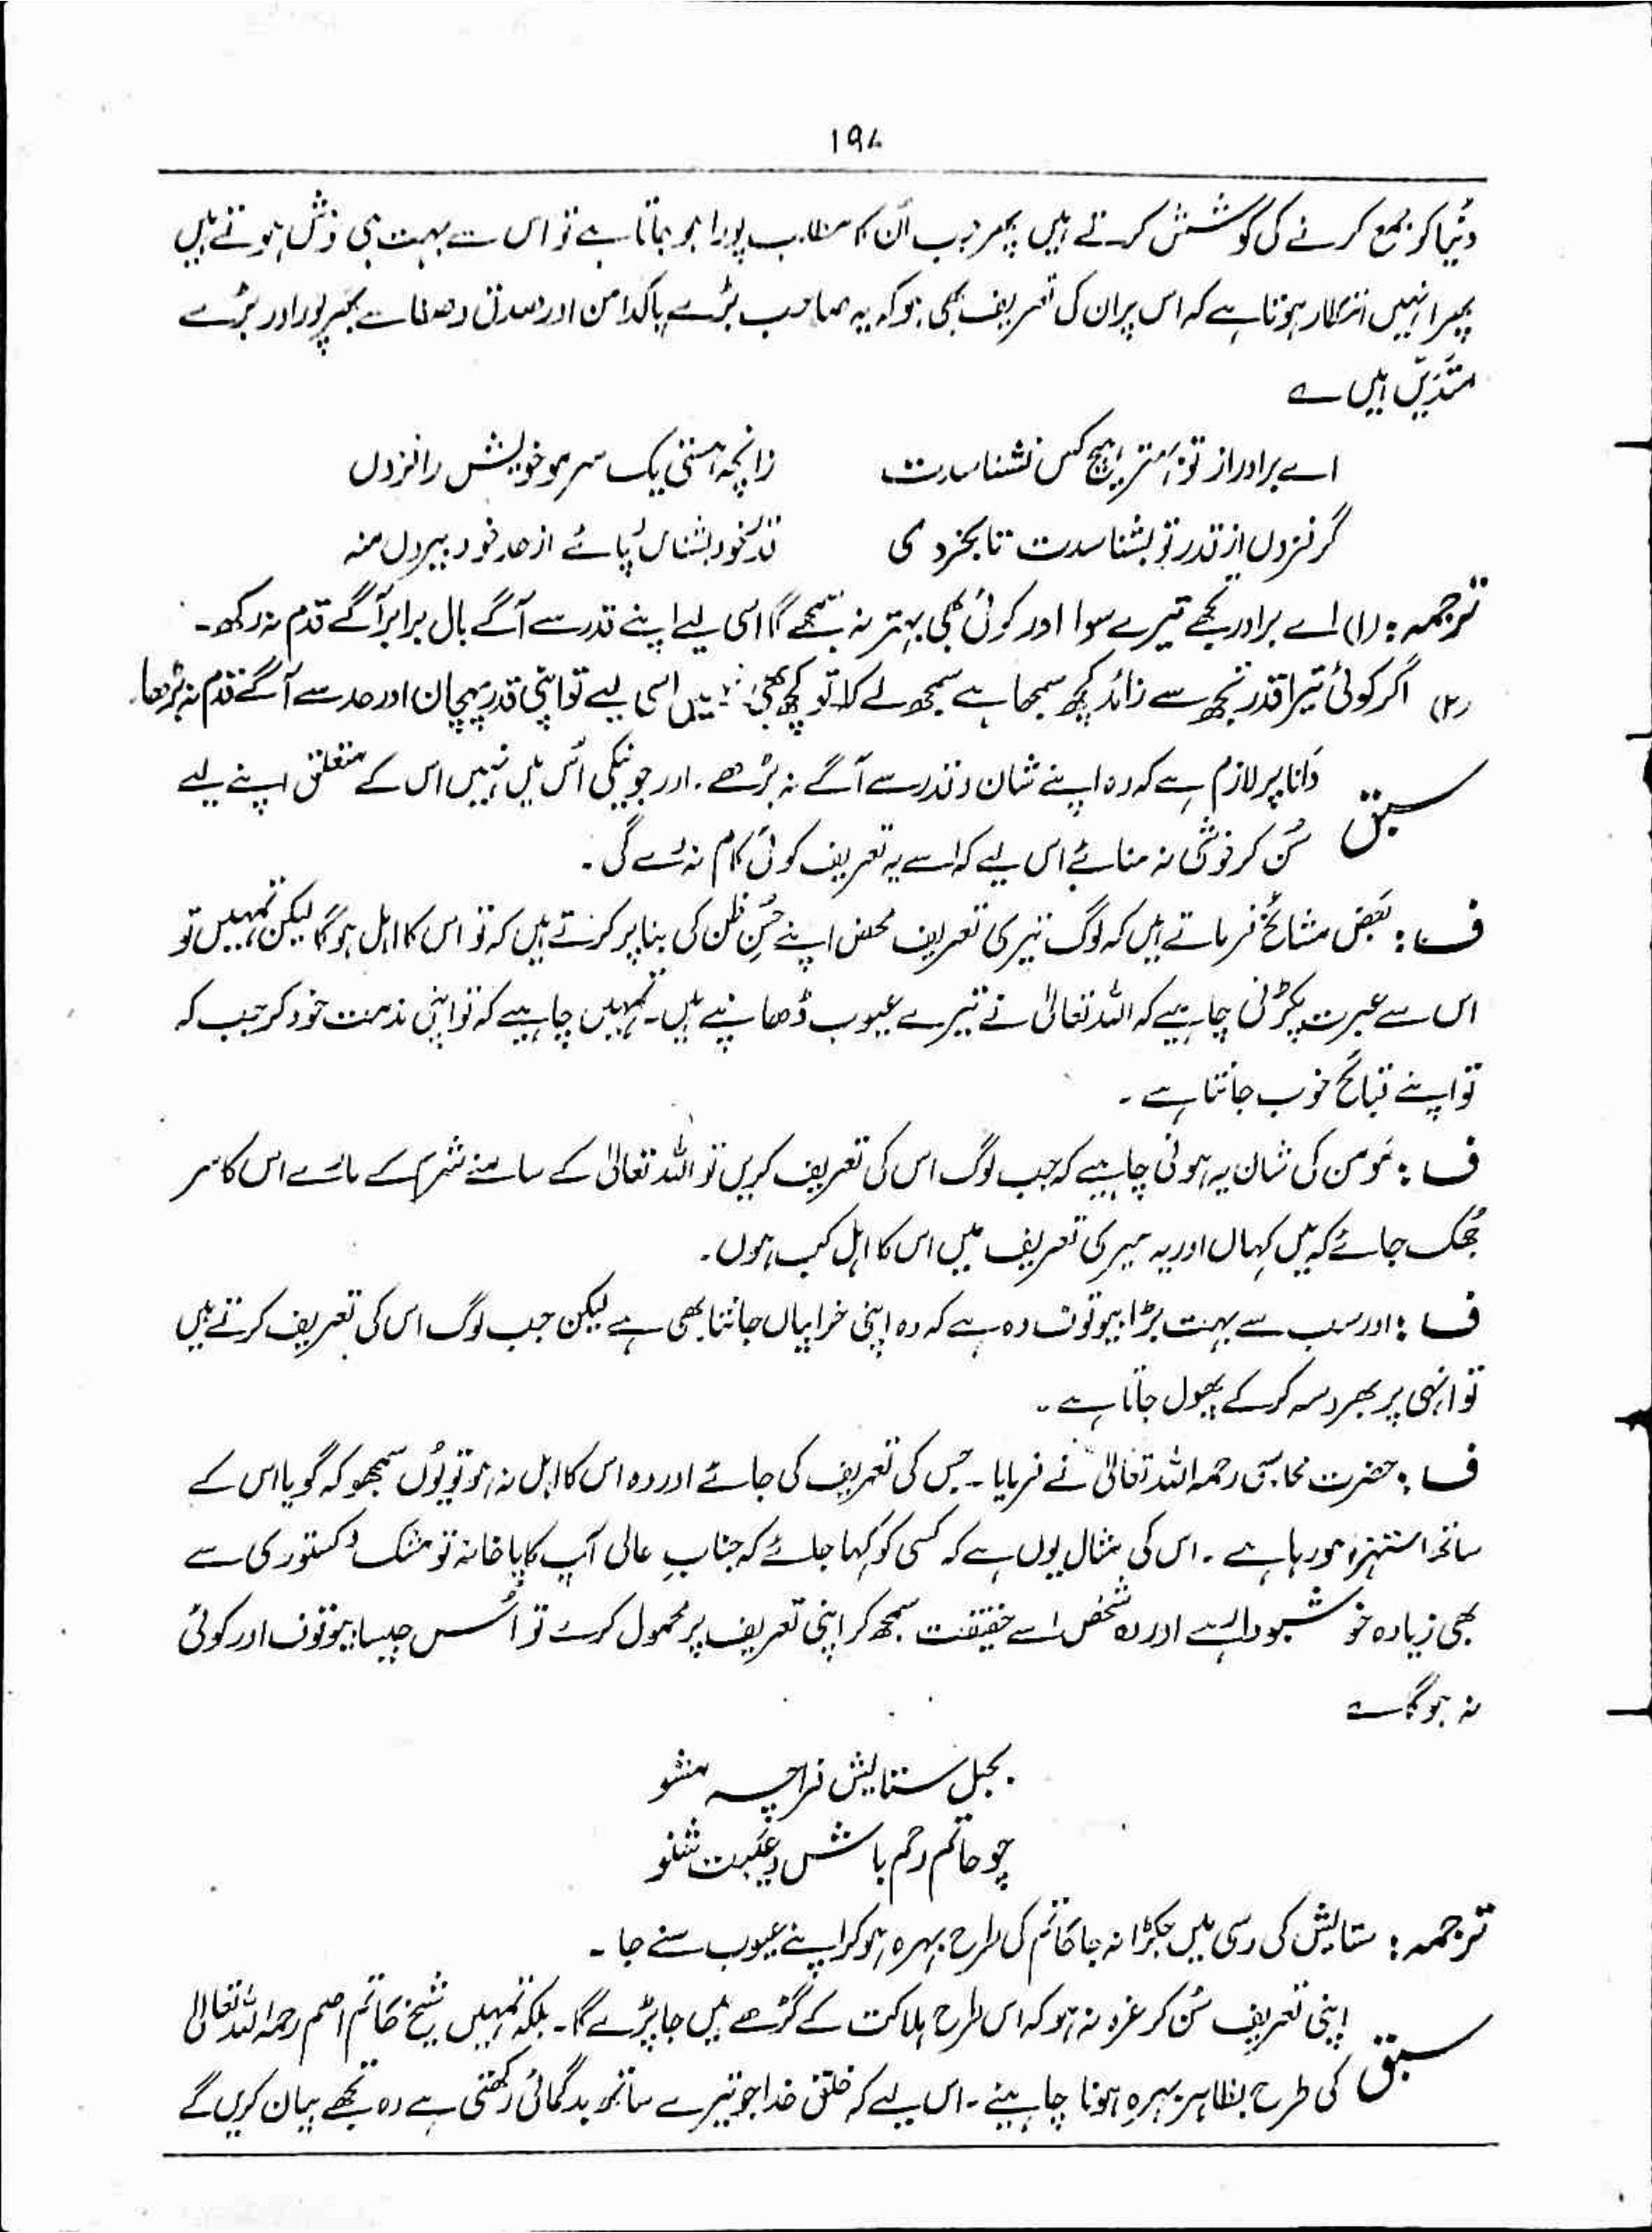 ۱۹۷
دُنیا کو جمع کرنے کی کوشش کرتے ہیں پھر جب اُن کا مطلب پورا ہو جاتا ہے تو اس سے بہت ہی خوش ہوتے ہیں
پھر انہیں انتظار ہوتا ہے کہ اس پر ان کی تعریف بھی ہو کہ یہ صاحب بڑے پاکدامن اور صدق وصفا سے بھرپور اور بڑے
متدیّن ہیں ے
اے برادر از تو بہتر ہیچ کس نشناسدت زانچہ ہستی یک سر مو خویش را افزوں
گر فزوں از قدر تو بشناسدت نابخردی قدر خود بشناس پائے از حد خود بیروں منہ
ترجمہ : (۱) اے برادر تجھے تیرے سوا اور کوئی بھی بہتر نہ سمجھے گا اسی لیے اپنے قدر سے آگے بال برابر آگے قدم نہ رکھ۔
(۲) اگر کوئی تیرا قدر تجھ سے زائد کچھ سمجھا ہے سمجھ لے کہ تو کچھ بھی نہیں اسی لیے تو اپنی قدر پہچان اور حد سے آگے قدم نہ بڑھا
سبق دانا پر لازم ہے کہ وہ اپنے شان وقدر سے آگے نہ بڑھے ۔ اور جو نیکی اُس میں نہیں اس کے متعلق اپنے لیے
سُن کر خوشی نہ منائے اس لیے کہ اسے یہ تعریف کوئی کام نہ دے گی ۔
ف : بعض مشائخ فرماتے ہیں کہ لوگ تیری تعریف محض اپنے حُسنِ ظن کی بنا پر کرتے ہیں کہ تو اس کا اہل ہوگا لیکن تمہیں تو
اس سے عبرت پکڑنی چاہیے کہ اللہ تعالیٰ نے تیرے عیوب ڈھانپے ہیں۔ تمہیں چاہیے کہ تو اپنی مذمت خود کر جب کہ
تو اپنے قبائح خوب جانتا ہے ۔
ف : مومن کی شان یہ ہونی چاہیے کہ جب لوگ اس کی تعریف کریں تو اللہ تعالیٰ کے سامنے شرم کے مارے اس کا سر
جُھک جائے کہ میں کہاں اور یہ میری تعریف میں اس کا اہل کب ہوں۔
ف : اور سب سے بہت بڑا بیوقوف وہ ہے کہ وہ اپنی خرابیاں جانتا بھی ہے لیکن جب لوگ اس کی تعریف کرتے ہیں
تو انہی پر بھروسہ کر کے پھول جاتا ہے ۔
ف : حضرت محاسبی رحمہ اللہ تعالیٰ نے فرمایا ۔ جس کی تعریف کی جائے اور وہ اس کا اہل نہ ہو تو یُوں سمجھو کہ گویا اس کے
ساتھ استہزاء ہو رہا ہے ۔ اس کی مثال یوں ہے کہ کسی کو کہا جائے کہ جنابِ عالی آپ کا پاخانہ تو مشک و کستوری سے
بھی زیادہ خوشبودار ہے اور وہ شخص اسے حقیقت سمجھ کر اپنی تعریف پر محمول کرے تو اُس جیسا بیوقوف اور کوئی
نہ ہوگا ے
بحبل ستایش فراچہ مشو
چو حاتم اصم باش و غیبت شنو
ترجمہ : ستایش کی رسی میں جکڑا نہ جا حاتم کی طرح بہرہ ہو کر اپنے عیوب سنے جا ۔
سبق اپنی تعریف سُن کر غرہ نہ ہو کہ اس طرح ہلاکت کے گڑھے میں جا پڑے گا۔ بلکہ تمہیں شیخ حاتم اصم رحمہ اللہ تعالیٰ
کی طرح بظاہر بہرہ ہونا چاہیئے ۔ اس لیے کہ خلقِ خدا جو تیرے ساتھ بدگمانی رکھتی ہے وہ تجھے بیان کریں گے